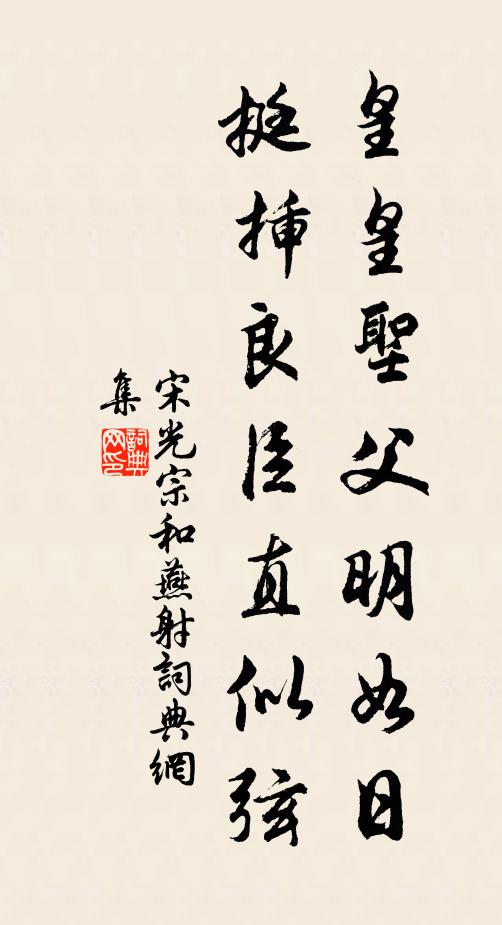 皇皇聖父明如日
挺挿良臣直似弦
宋光宗和燕射詞典網
集
詞典網印